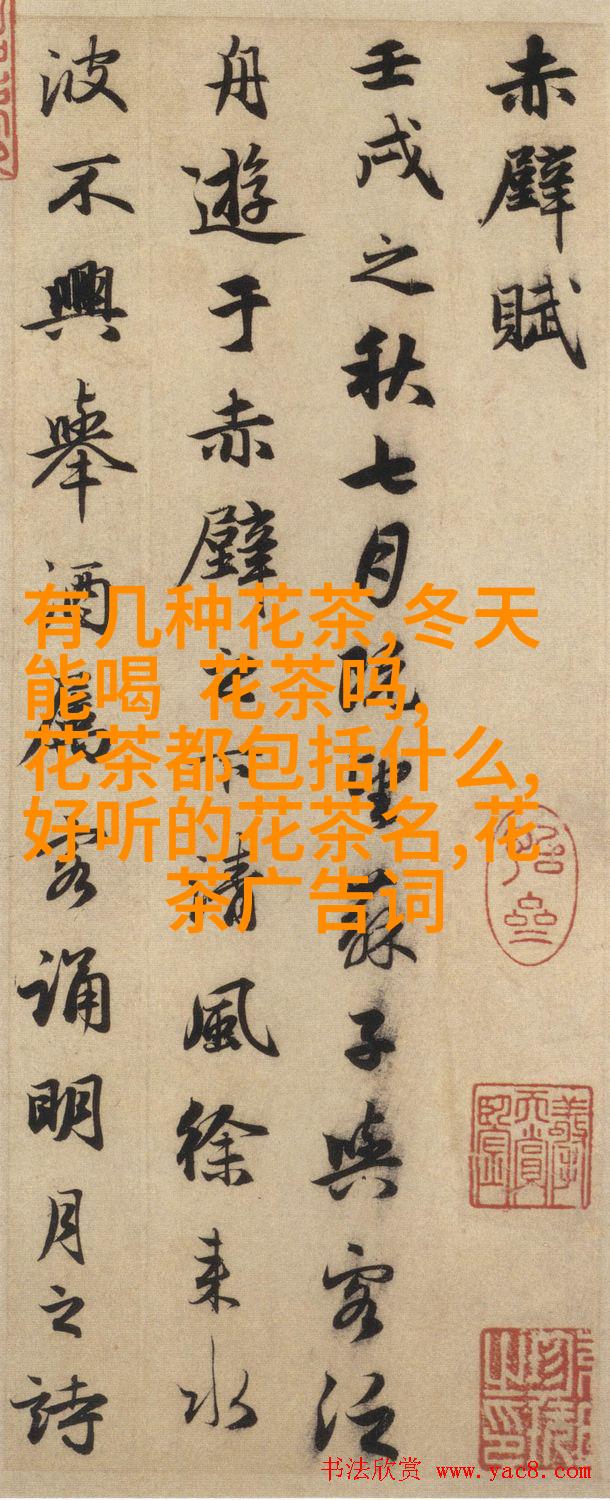 赤壁賦
壬戌之秋七月既望蘇子與客泛
舟遊于赤壁之下清風徐来水
波不興舉酒属客誦明月之詩
有几种花茶,冬天
能喝 花茶吗,
花茶都包括什么,
好听的花茶名,花
茶广告词
书法欣赏 www.yac8.com